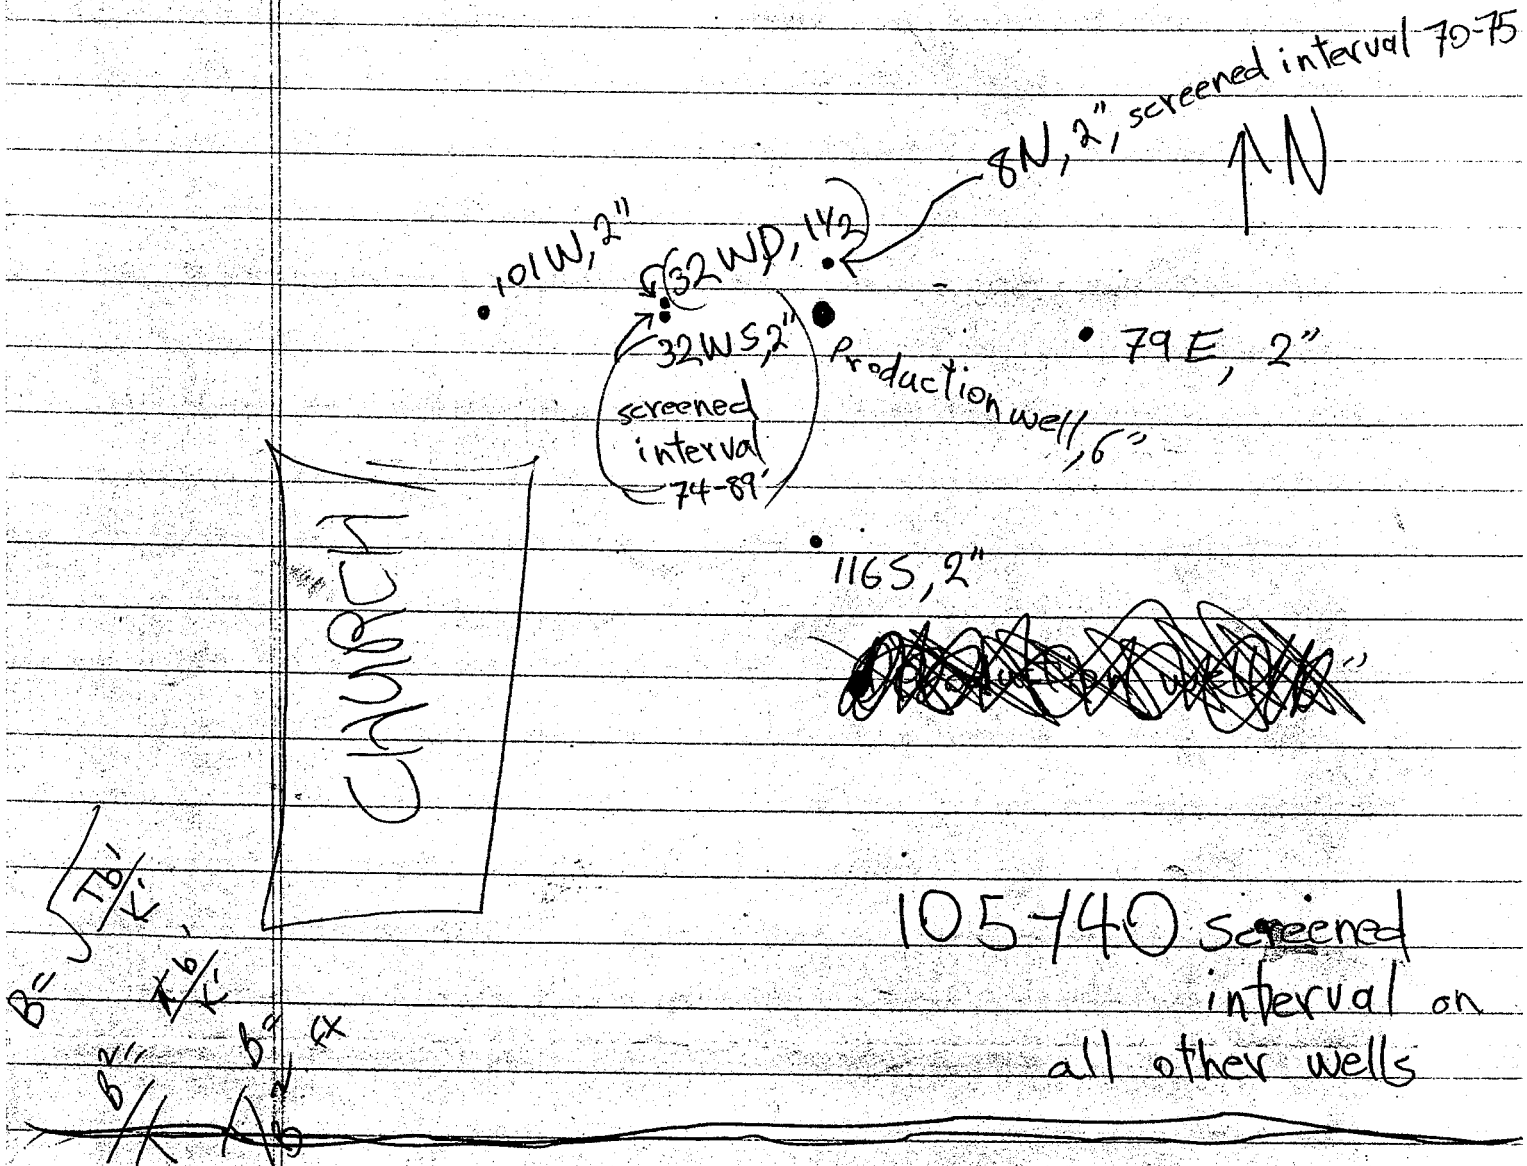 8N, 2", screened interval 70-75
N
101W, 2"
(32WD, 1 1/2)
32WS, 2"
screened
interval
74-89'
Production well, 6"
79E, 2"
116S, 2"
CHURCH
105-140 screened
interval on
all other wells
B= √Tb'/K'
b'/K'
B²
b=